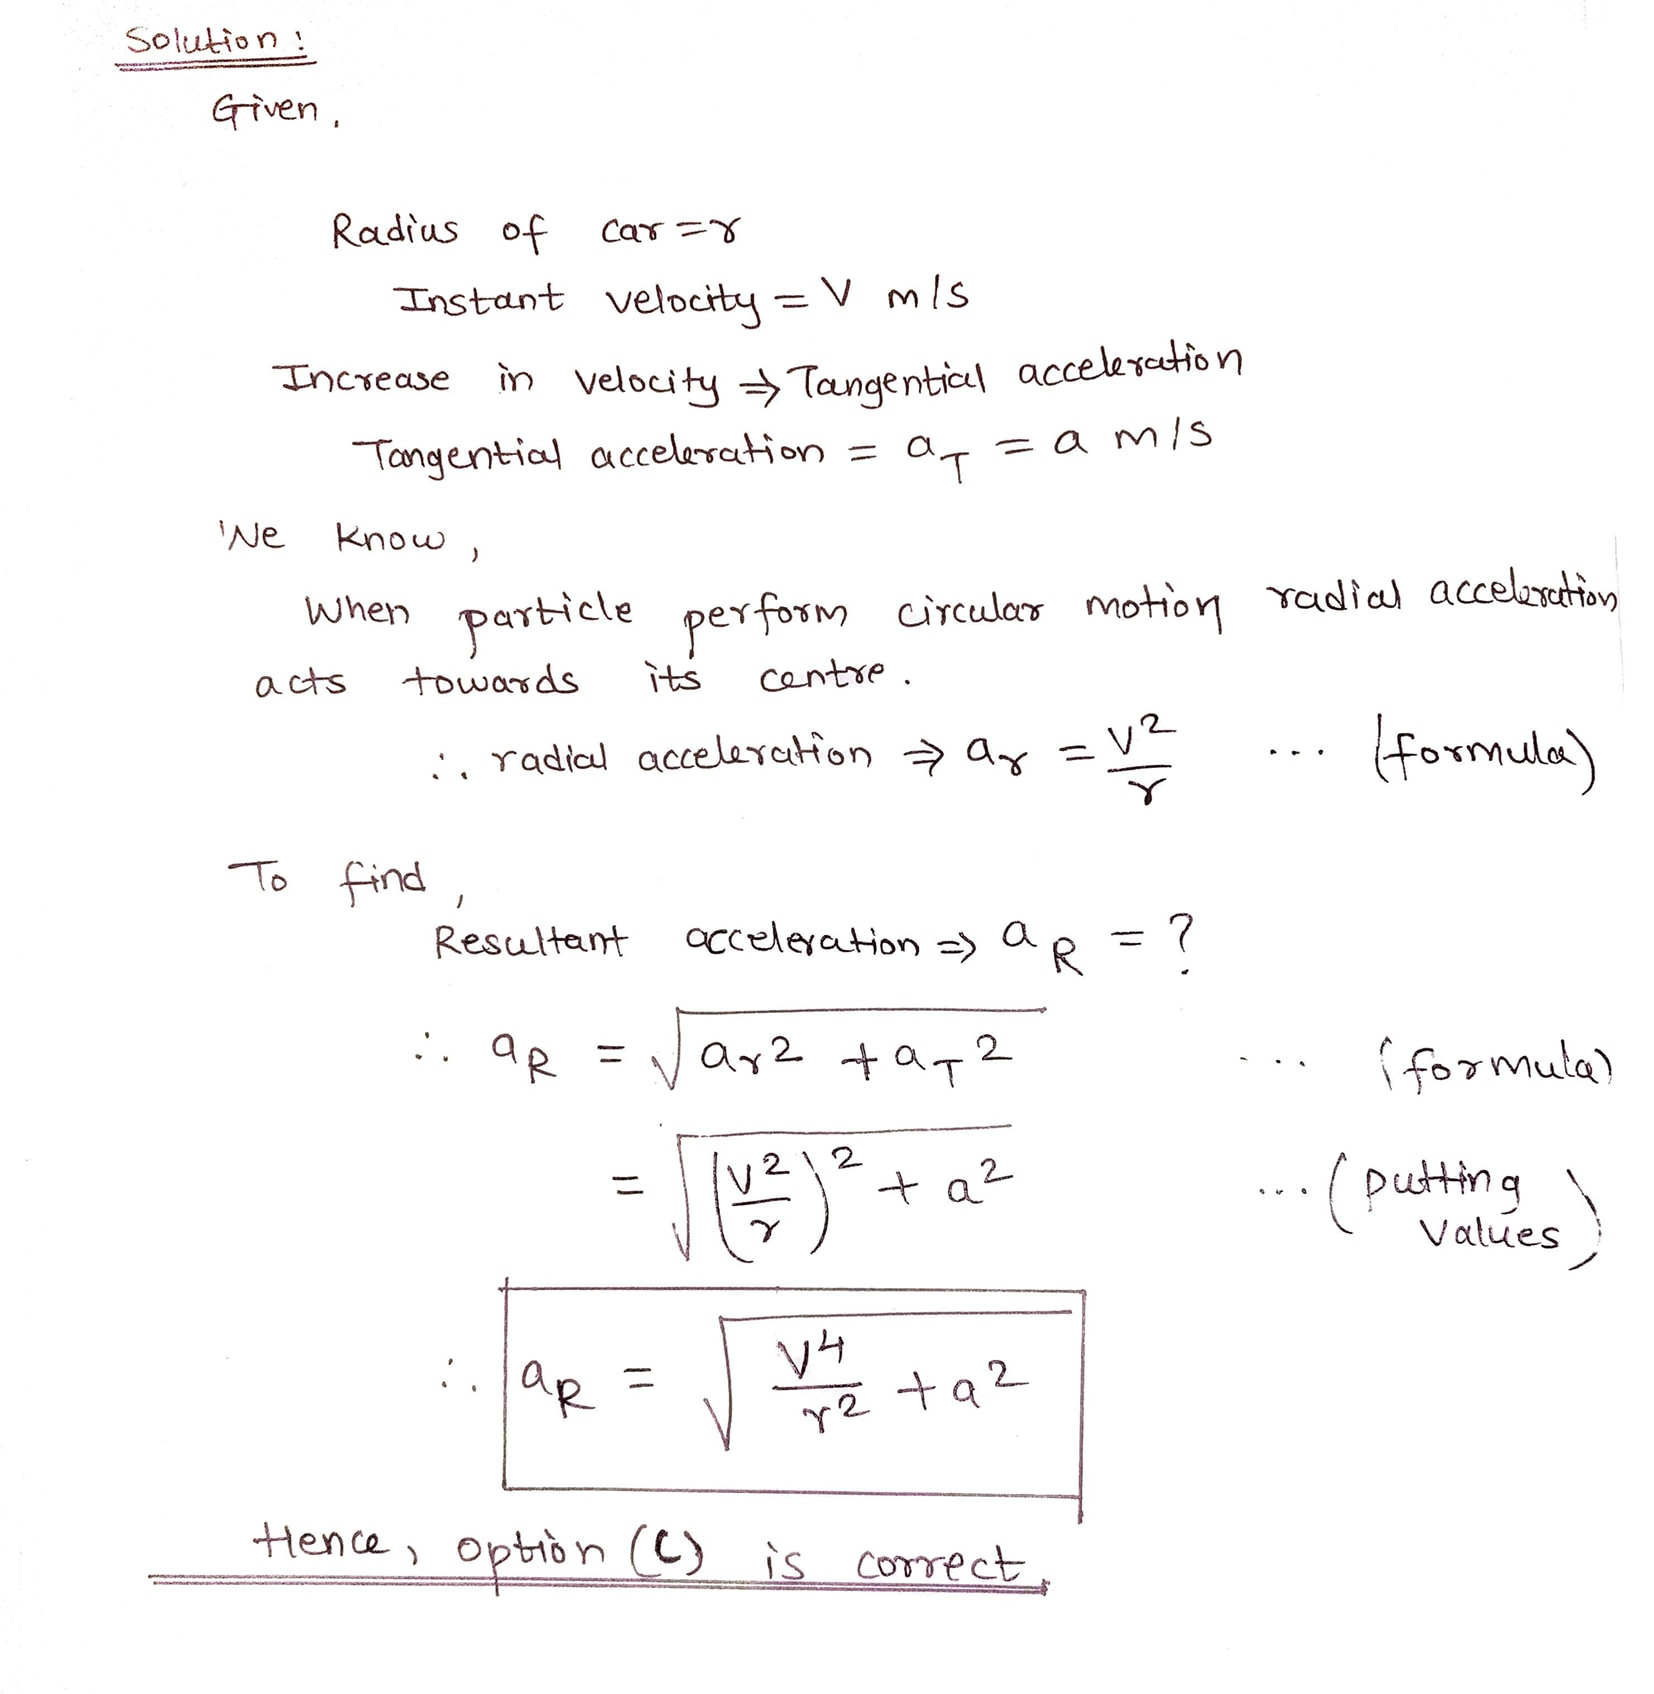 Solution:
Given,
Radius of car = r
Instant velocity = V m/s
Increase in velocity ⇒ Tangential acceleration
Tangential acceleration = a_T = a m/s
We know,
When particle perform circular motion radial acceleration
acts towards its centre.
∴ radial acceleration ⇒ a_r = V²/r ... (formula)
To find,
Resultant acceleration ⇒ a_R = ?
∴ a_R = √(a_r² + a_T²) ... (formula)
= √((V²/r)² + a²) ... (putting values)
∴ a_R = √(V⁴/r² + a²)
Hence, option (C) is correct.